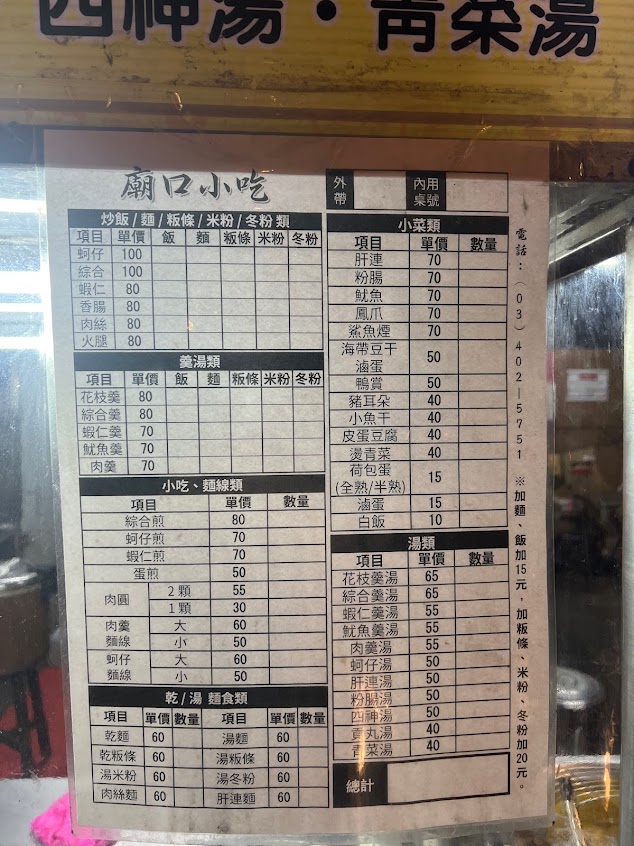 四神湯・青菜湯
廟口小吃
外帶 內用桌號
炒飯/麵/粄條/米粉/冬粉類
項目 單價 飯 麵 粄條 米粉 冬粉
蚵仔 100
綜合 100
蝦仁 80
香腸 80
肉絲 80
火腿 80
羹湯類
項目 單價 飯 麵 粄條 米粉 冬粉
花枝羹 80
綜合羹 80
蝦仁羹 70
魷魚羹 70
肉羹 70
小吃、麵線類
項目 單價 數量
綜合煎 80
蚵仔煎 70
蝦仁煎 70
蛋煎 50
肉圓 2顆 55
1顆 30
肉羹麵線 大 60
小 50
蚵仔麵線 大 60
小 50
乾/湯 麵食類
項目 單價 數量 項目 單價 數量
乾麵 60 湯麵 60
乾粄條 60 湯粄條 60
湯米粉 60 湯冬粉 60
肉絲麵 60 肝連麵 60
小菜類
項目 單價 數量
肝連 70
粉腸 70
魷魚 70
鳳爪 70
鯊魚煙 70
海帶豆干
滷蛋 50
鴨賞 50
豬耳朵 40
小魚干 40
皮蛋豆腐 40
燙青菜 40
荷包蛋
(全熟/半熟) 15
滷蛋 15
白飯 10
湯類
項目 單價 數量
花枝羹湯 65
綜合羹湯 65
蝦仁羹湯 55
魷魚羹湯 55
肉羹湯 55
蚵仔湯 50
肝連湯 50
粉腸湯 50
四神湯 50
貢丸湯 40
青菜湯 40
總計
電話：(03)402-5751 ※加麵、飯加15元，加粄條、米粉、冬粉加20元。